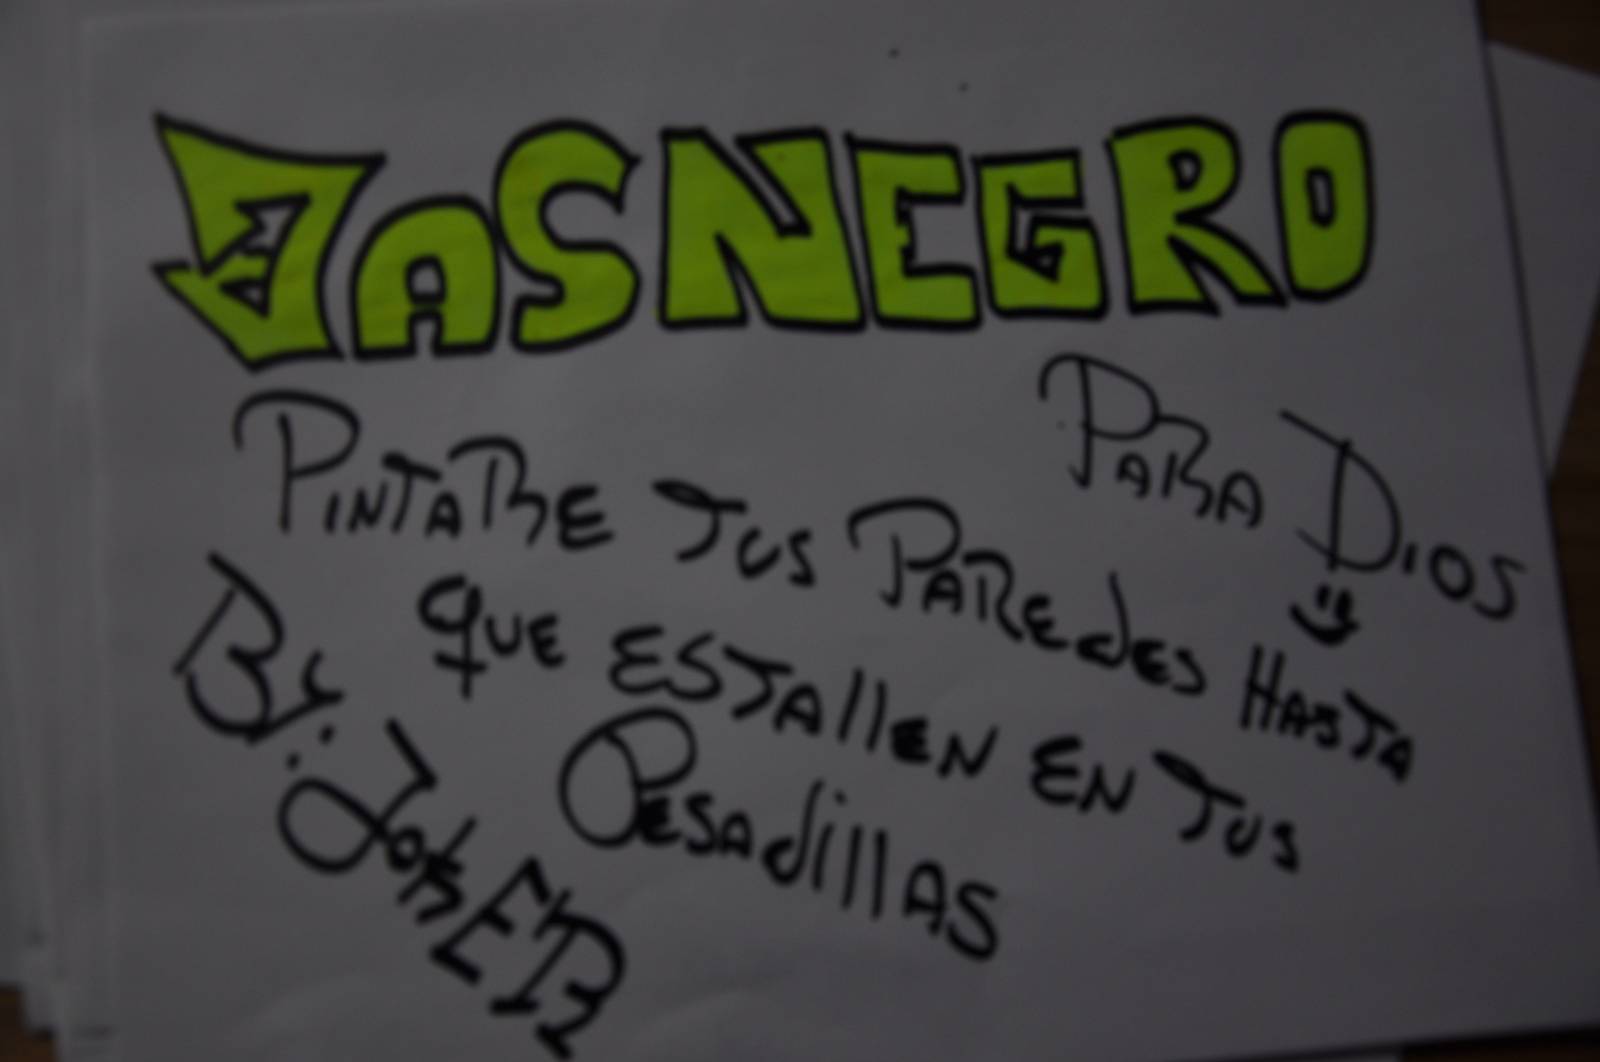 JASNEGRO
PARA DIOS
PINTARE TUS PAREdES HASTA
QUE ESTAllEN EN TUS
PESAdillAS
By: JokER